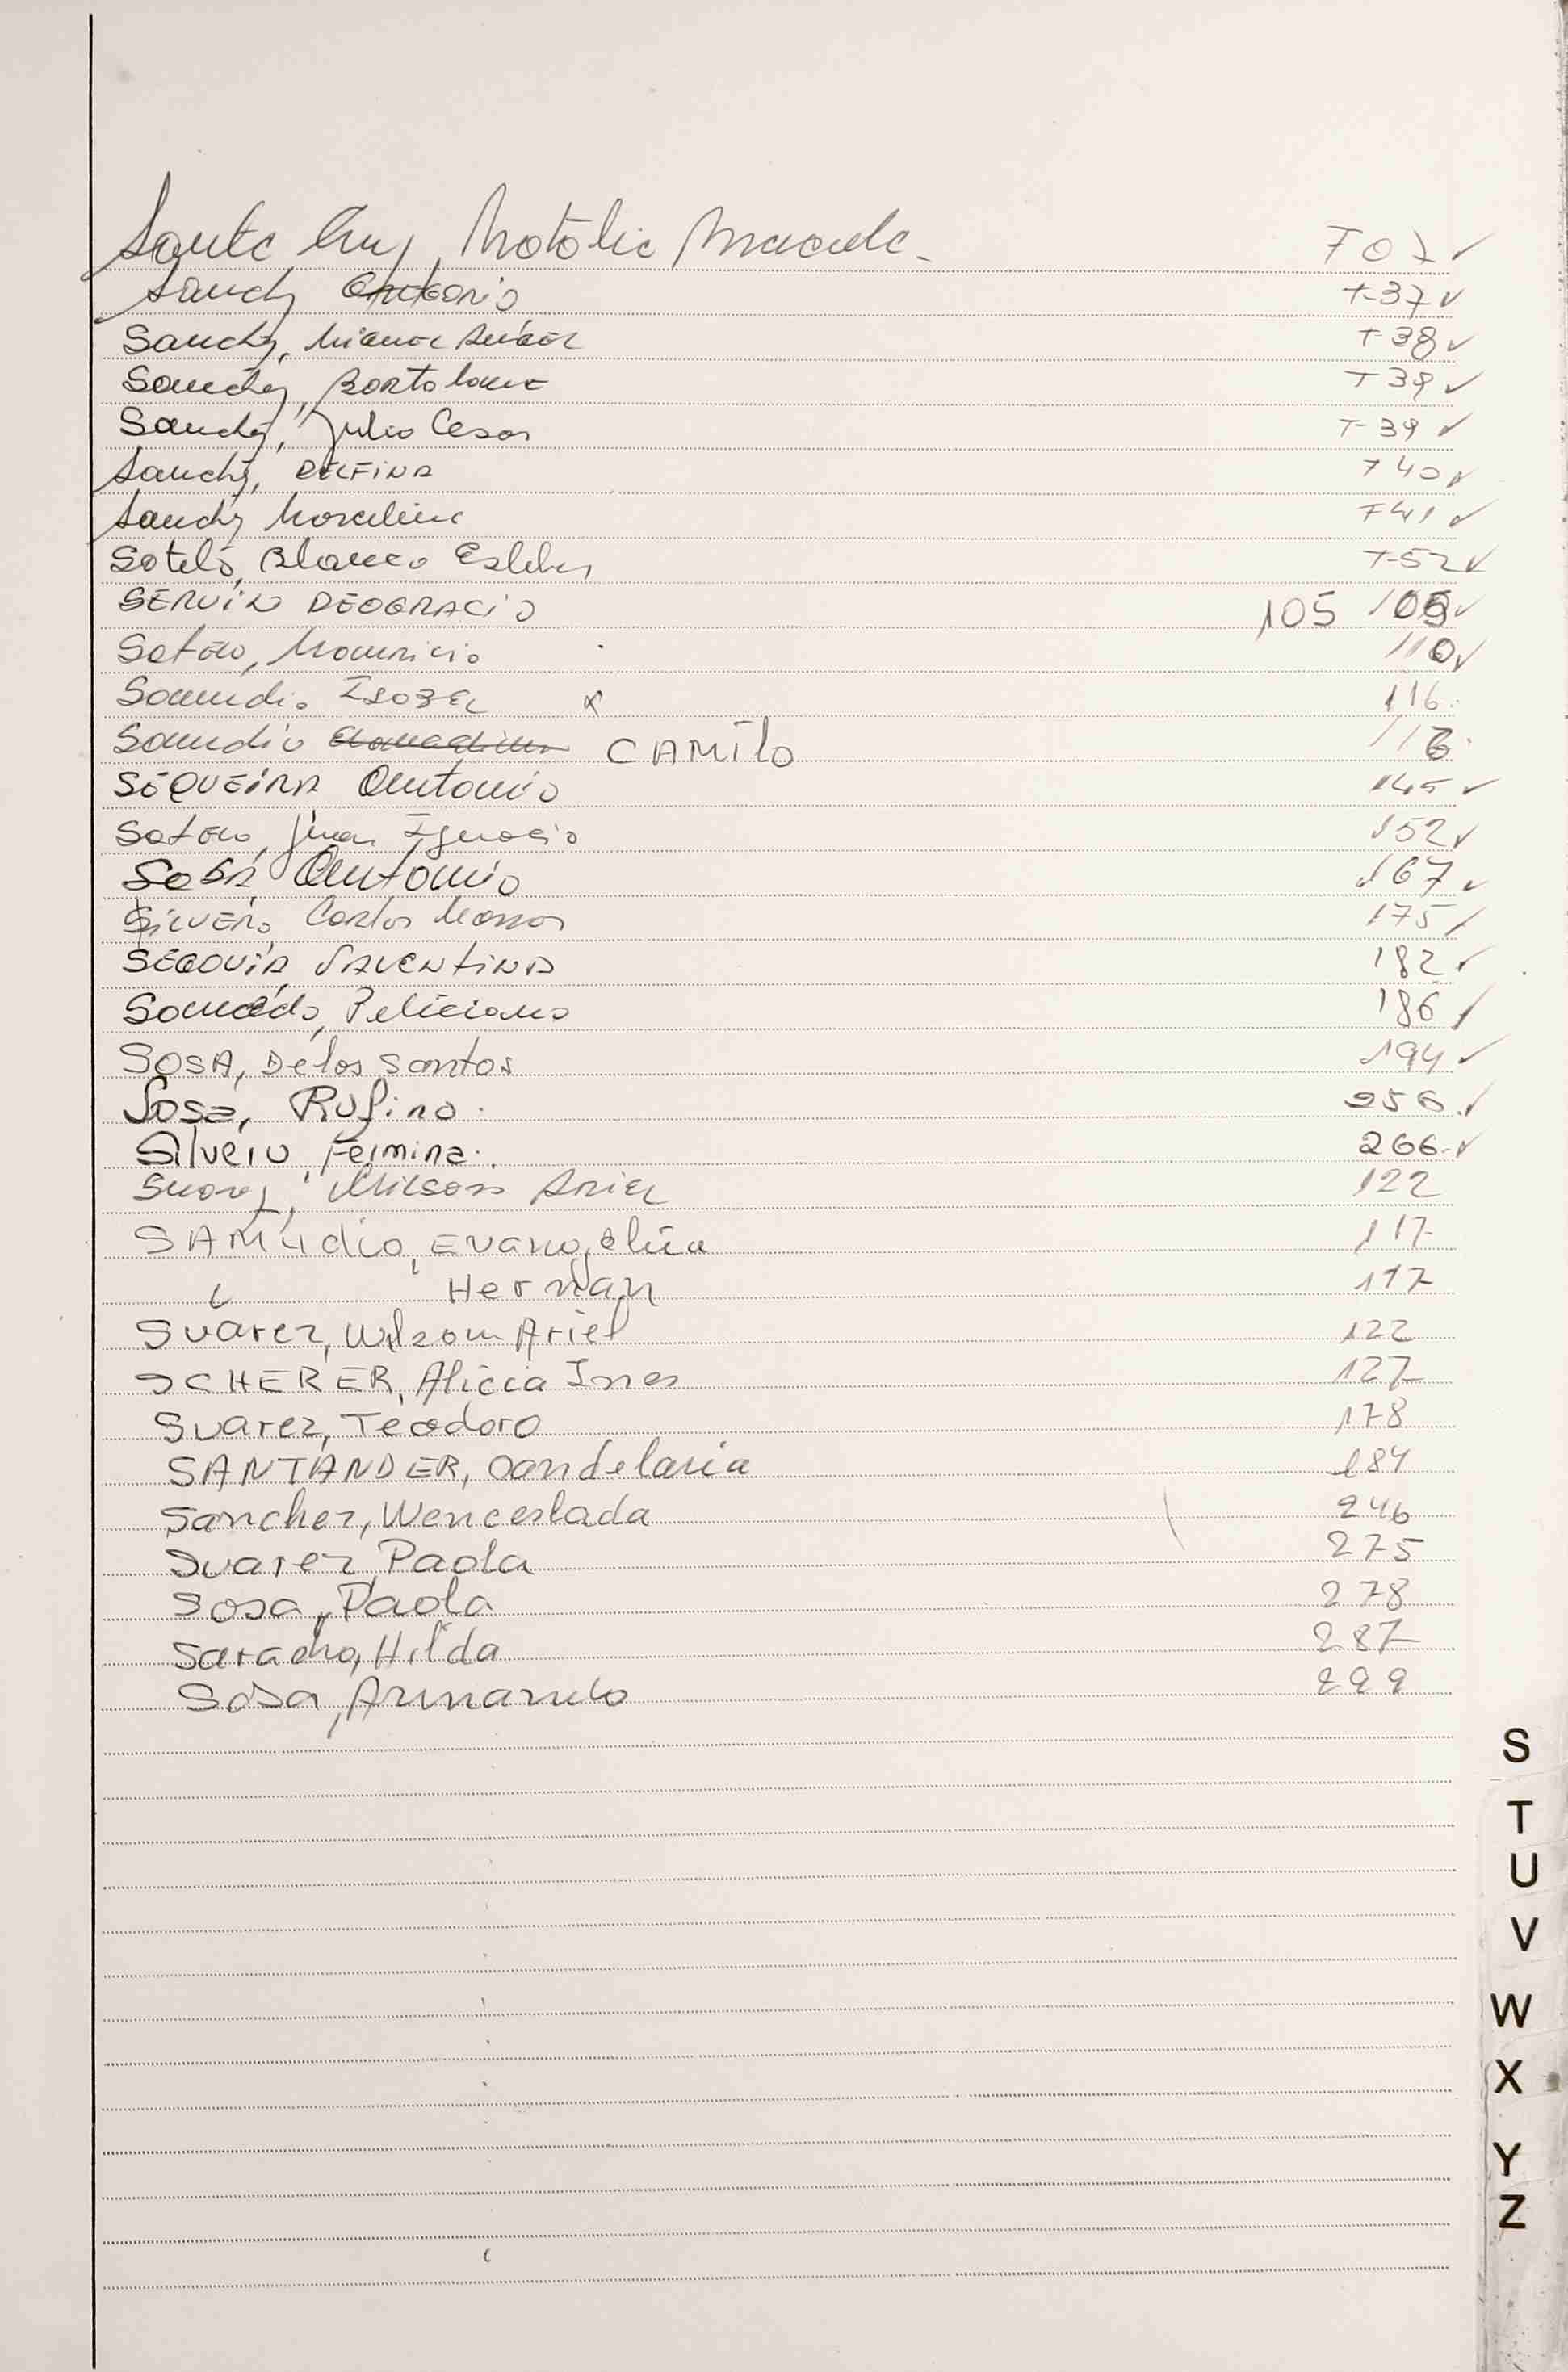 Santa Cruz, Natalia 707 ✓
Sanchez Antonio T-37 ✓
Sanchez, Miguel Angel T-38 ✓
Sanchez, Bartolome T 39 ✓
Sanchez, Julio Cesar T-39 ✓
Sanchez, DELFINA 740 ✓
Sanchez Marcelina 741 ✓
Sotelo, Blanco Esteban T-52 ✓
SERVIN DEOGRACIO 105 105 ✓
Sotelo, Mauricio 110 ✓
Samudio ISABEL x 116
Samudio CAMILO 116
SEQUEIRA Antonio 145 ✓
Sotelo, Juan Ignacio 152 ✓
Sosa, Antonio 167 ✓
SILVERO, Carlos Marcos 175 /
SEGOVIA, VALENTINA 182 ✓
Feliciano 186 /
SOSA, De los Santos 194 ✓
Sosa, Rufino. 256. ✓
Silvero, Fermina. 266. ✓
Suarez, Wilson ARIEL 122
SAMudio, Evangelina 117
" Hernan 117
Suarez, Wilson Ariel 122
SCHERER, Alicia Ines 127
Suarez, Teodoro 178
SANTANDER, Candelaria 184
Sanchez, Wenceslada 246
Suarez, Paola 275
Sosa, Paola 278
Saracho, Hilda 287
Sosa, Armando 299
S
T
U
V
W
X
Y
Z